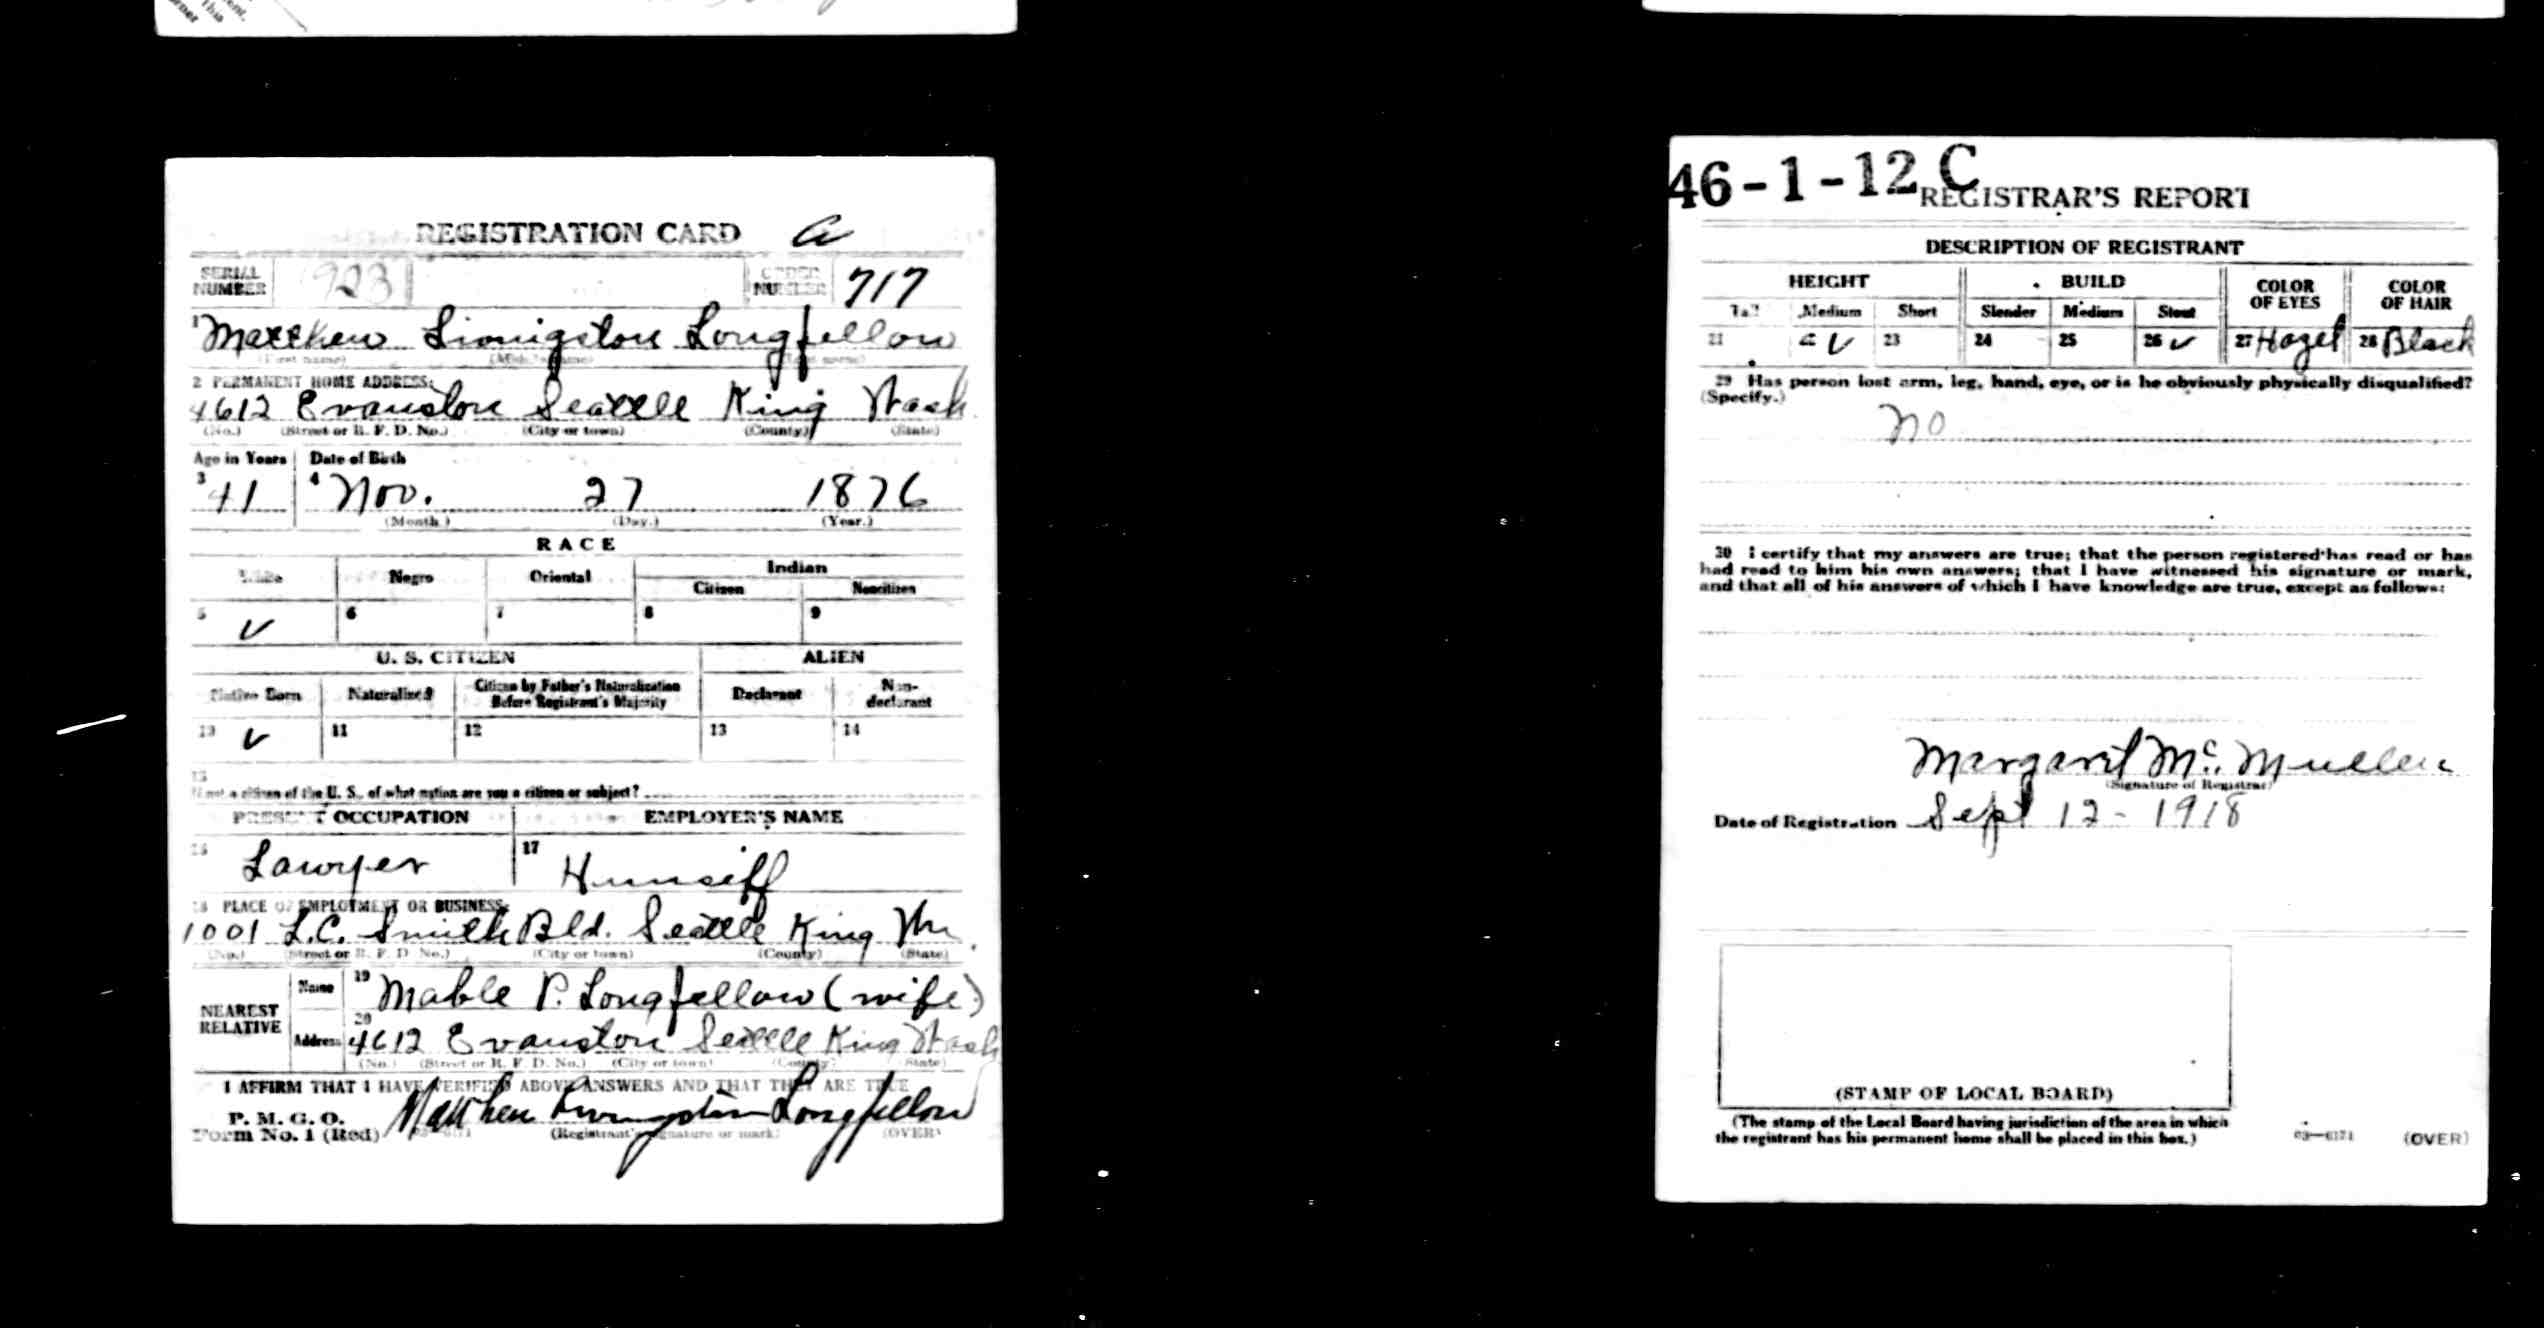 REGISTRATION CARD a
SERIAL NUMBER 923 ORDER NUMBER 717
1 Matthew Livingston Longfellow
(First name) (Middle name) (Last name)
2 PERMANENT HOME ADDRESS:
4612 Evanston Seattle King Wash
(No.) (Street or R. F. D. No.) (City or town) (County) (State)
Age in Years Date of Birth
3 41 4 Nov. 27 1876
(Month.) (Day.) (Year.)
RACE
White Negro Oriental Indian
Citizen Noncitizen
5 ✓ 6 7 8 9
U. S. CITIZEN ALIEN
Native Born Naturalized Citizen by Father's Naturalization Before Registrant's Majority Declarant Non-declarant
10 ✓ 11 12 13 14
15
If not a citizen of the U. S., of what nation are you a citizen or subject?
PRESENT OCCUPATION EMPLOYER'S NAME
16 Lawyer 17 Himself
18 PLACE OF EMPLOYMENT OR BUSINESS:
1001 L.C. Smith Bld. Seattle King Wn
(No.) (Street or R. F. D. No.) (City or town) (County) (State)
NEAREST RELATIVE
Name 19 Mable P. Longfellow (wife)
Address 20 4612 Evanston Seattle King Wash
(No.) (Street or R. F. D. No.) (City or town) (County) (State)
I AFFIRM THAT I HAVE VERIFIED ABOVE ANSWERS AND THAT THEY ARE TRUE
P. M. G. O.
Form No. 1 (Red) Matthew Livingston Longfellow
(Registrant's signature or mark) (OVER)
46-1-12 C
REGISTRAR'S REPORT
DESCRIPTION OF REGISTRANT
HEIGHT BUILD COLOR OF EYES COLOR OF HAIR
Tall Medium Short Slender Medium Stout
21 22 ✓ 23 24 25 26 ✓ 27 Hazel 28 Black
29 Has person lost arm, leg, hand, eye, or is he obviously physically disqualified?
(Specify.)
no
30 I certify that my answers are true; that the person registered has read or has
had read to him his own answers; that I have witnessed his signature or mark,
and that all of his answers of which I have knowledge are true, except as follows:
Margaret Mc. Mullen
(Signature of Registrar)
Date of Registration Sept 12 - 1918
(STAMP OF LOCAL BOARD)
(The stamp of the Local Board having jurisdiction of the area in which
the registrant has his permanent home shall be placed in this box.)
03—6171 (OVER)